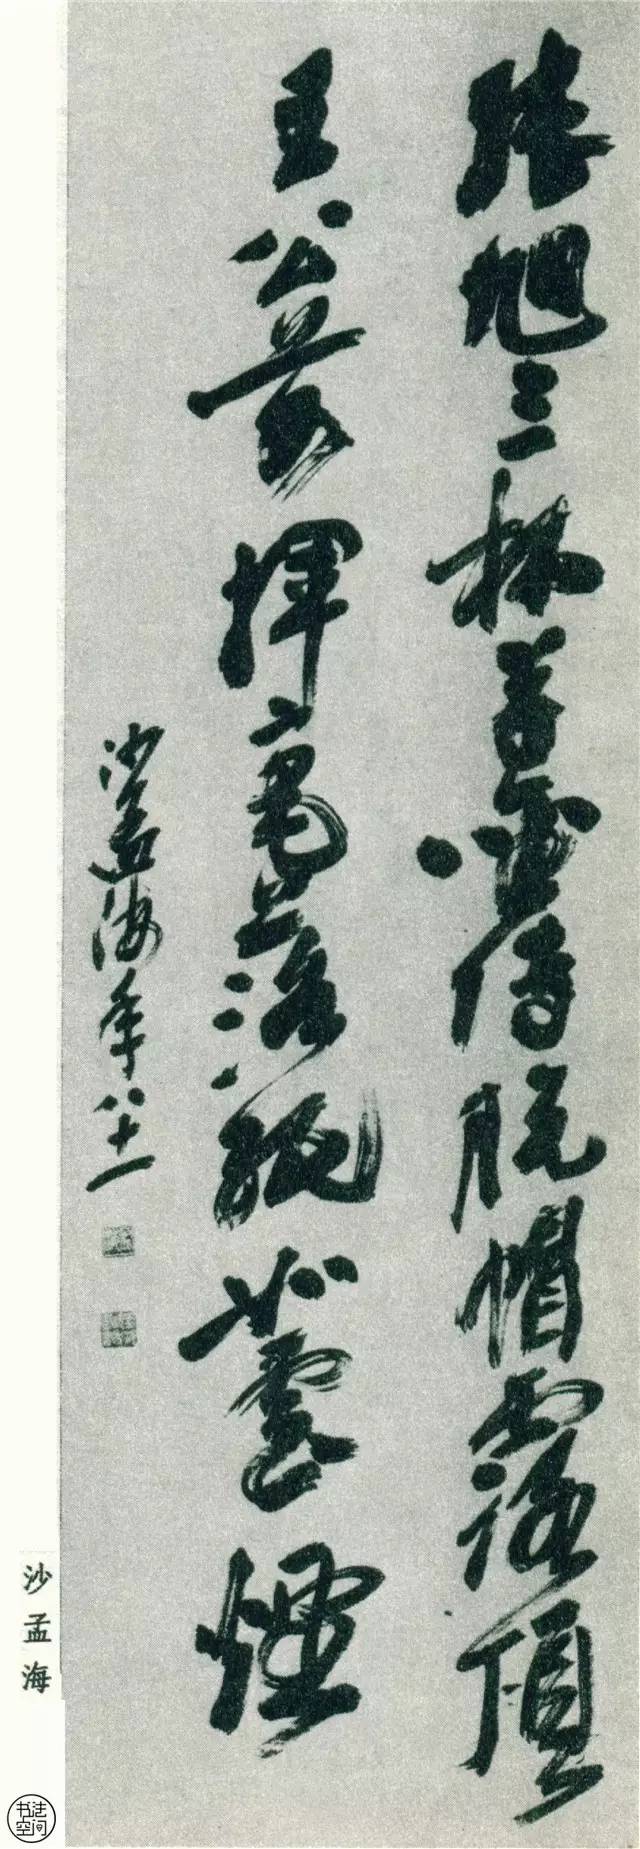 張旭三杯草聖傳脫帽露頂
王公前揮毫落紙如雲煙
沙孟海年八十一
沙孟海
书法
空间